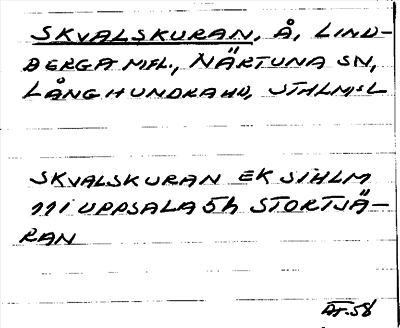 SKVALSKURAN, Å, LIND-
BERGA M.FL., NÄRTUNA SN,
LÅNGHUNDRA HD, STHLMS L
SKVALSKURAN EK STHLM
111 UPPSALA 5h STORTJÄ-
RAN
AF.58